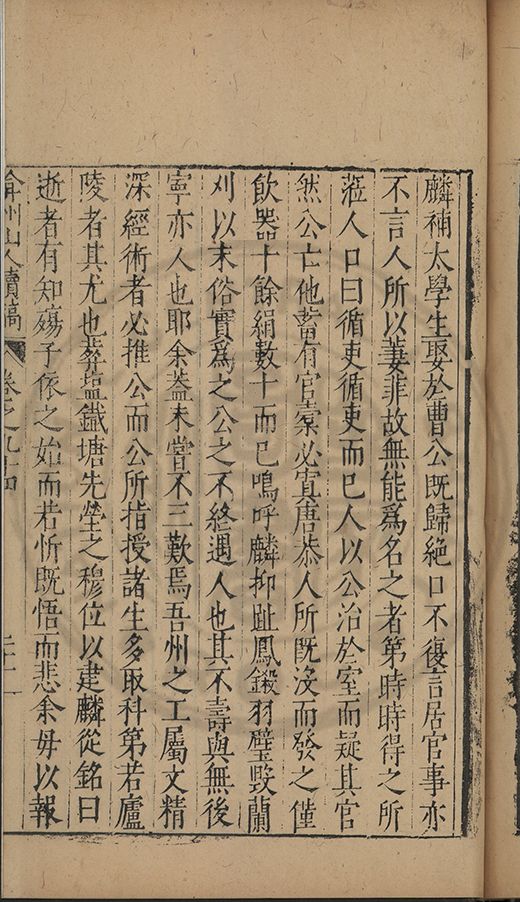 麟補太學生娶於曹公既歸絕口不復言居官事亦
不言人所以萋菲故無能爲名之者第時時得之所
蒞人口曰循吏循吏而已人以公治於室而疑其官
然公亡他蓄有官橐必寘唐恭人所既沒而發之僅
飲器十餘絹數十而已嗚呼麟抑趾鳳鎩羽璧毀蘭
刈以末俗實爲之公之不終遇人也其不壽與無後
寧亦人也耶余蓋未嘗不三歎焉吾州之工屬文精
深經術者必推公而公所指授諸生多取科第若廬
陵者其尤也葬塩鐵塘先塋之穆位以建麟從銘曰
逝者有知殤子依之始而若忻既悟而悲余毋以報
弇州山人續稿 卷之九十四 二十一